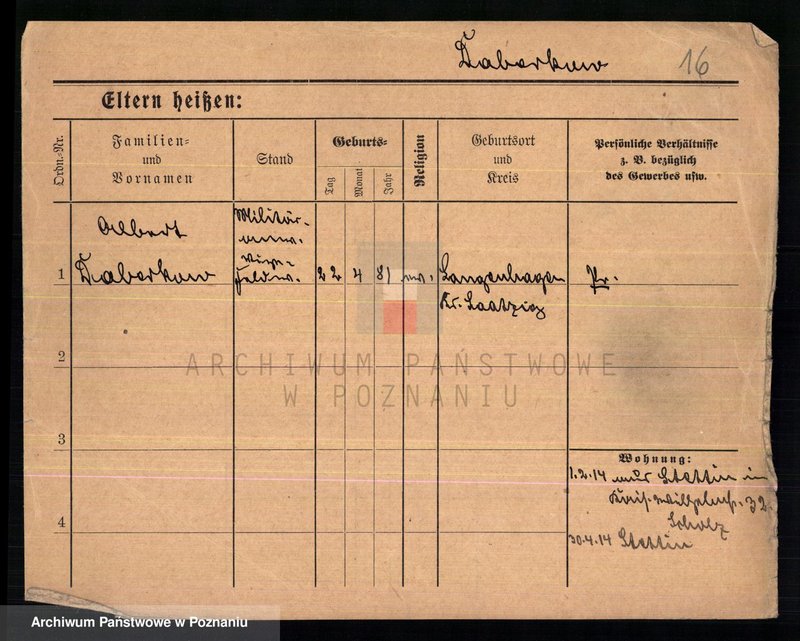 Daberkow 16
Eltern heißen:
Ordn.-Nr.
Familien-
und
Vornamen
Stand
Geburts-
Tag
Monat
Jahr
Religion
Geburtsort
und
Kreis
Persönliche Verhältnisse
z. B. bezüglich
des Gewerbes usw.
Albert
Militär-
anw.
Vize-
1 Daberkow Feldw. 22 4 81 ev. Langenhagen Pr.
Kr. Saatzig
2
ARCHIWUM PAŃSTWOWE
W POZNANIU
3
Wohnung:
1.2.14 aus Stettin in
Kais. Wilhelmst. 32
Scholz
4
30.4.14 Stettin
Archiwum Państwowe w Poznaniu